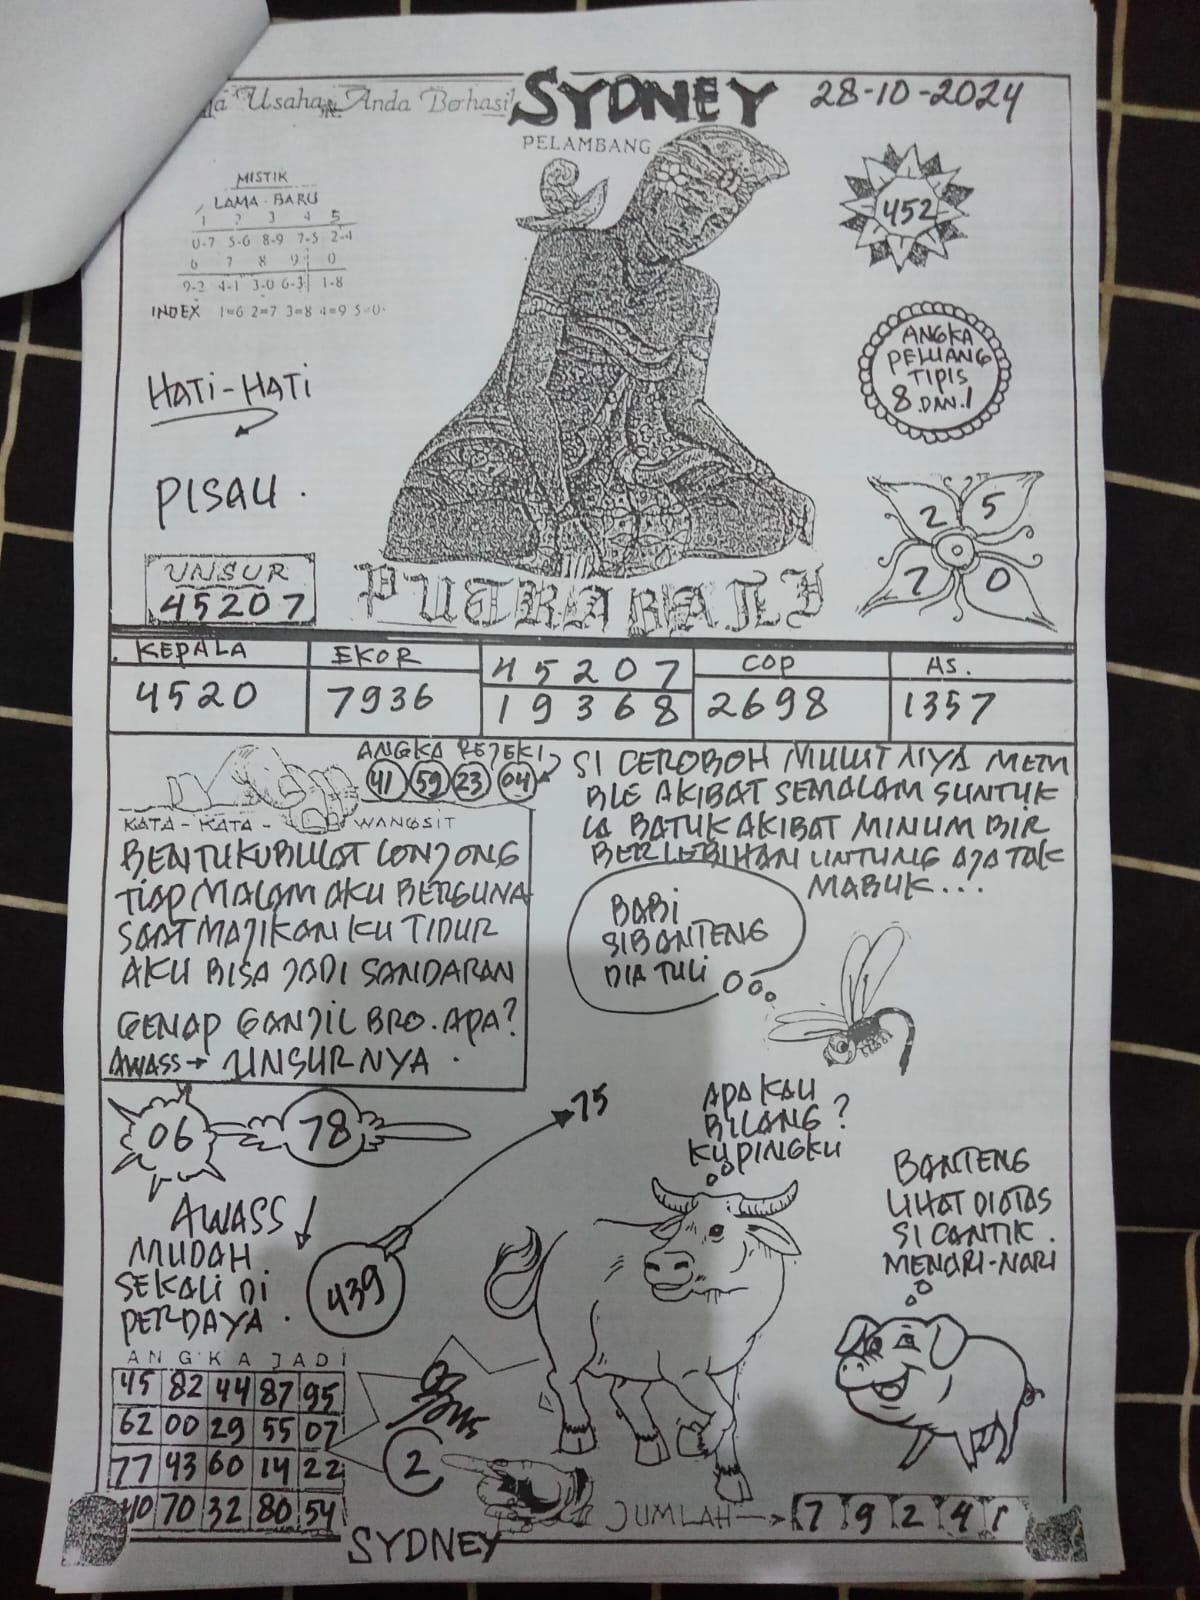 Usaha Anda Berhasil
SYDNEY
28-10-2024
PELAMBANG
MISTIK
LAMA - BARU
1 2 3 4 5
0-7 5-6 8-9 7-5 2-4
6 7 8 9 0
9-2 4-1 3-0 6-3 1-8
INDEX 1=6 2=7 3=8 4=9 5=0
452
HATI-HATI
ANGKA
PELUANG
TIPIS
8 DAN 1
PISAU.
2 5
7 0
UNSUR
45207
PUTRA BALI
KEPALA EKOR 45207 COP AS.
4520 7936 19368 2698 1357
ANGKA REJEKI
41 59 23 04
KATA - KATA - WANGSIT
BENTUKU BULAT LONJONG
TIAP MALAM AKU BERGUNA
SAAT MAJIKAN KU TIDUR
AKU BISA JADI SANDARAN
GENAP GANJIL BRO. APA?
AWASS → UNSURNYA.
SI CEROBOH MULUTNYA MEM
BLE AKIBAT SEMALAM SUNTUK
IA BATUK AKIBAT MINUM BIR
BERLEBIHAN UNTUNG AJA TAK
MABUK...
BABI
SIBANTENG
DIA TULI
APA KAU
BILANG?
KUPINGKU
BANTENG
LIHAT DIATAS
SI CANTIK.
MENARI-NARI
06 78
75
AWASS
MUDAH
SEKALI DI
PERDAYA.
439
ANGKA JADI
45 82 44 87 95
62 00 29 55 07
77 43 60 14 22
40 70 32 80 54
2
JUMLAH → 7 9 2 4 1
SYDNEY